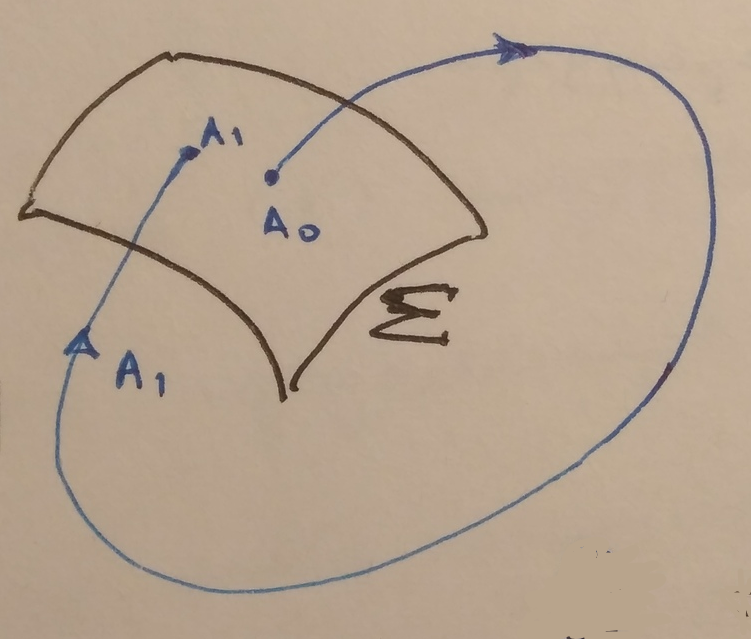 A1
A0
Σ
A1